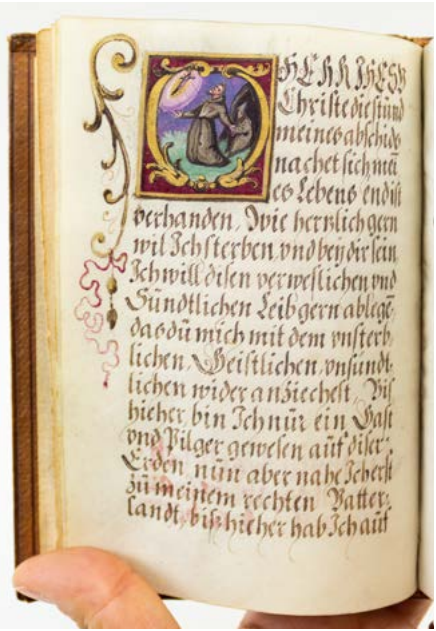 O HERR JHESV
Christe die stund
meines abschids
nachet sich mein
es Lebens end ist
verhanden, Wie hertzlich gern
wil Ich sterben, vnd bey dir sein
Ich will disen verweslichen vnd
Sündtlichen Leib gern ablegē,
das dū mich mit dem vnsterb,
lichen, Geistlichen, vnsündt,
lichen wider anziechest, Bis
hieher bin Ich nūr ein Gast
vnd Pilger gewesen aūf diser
Erden, nūn aber nahe Ich erst
zū meinem rechten Vatter,
landt, bis hieher hab Ich aūf